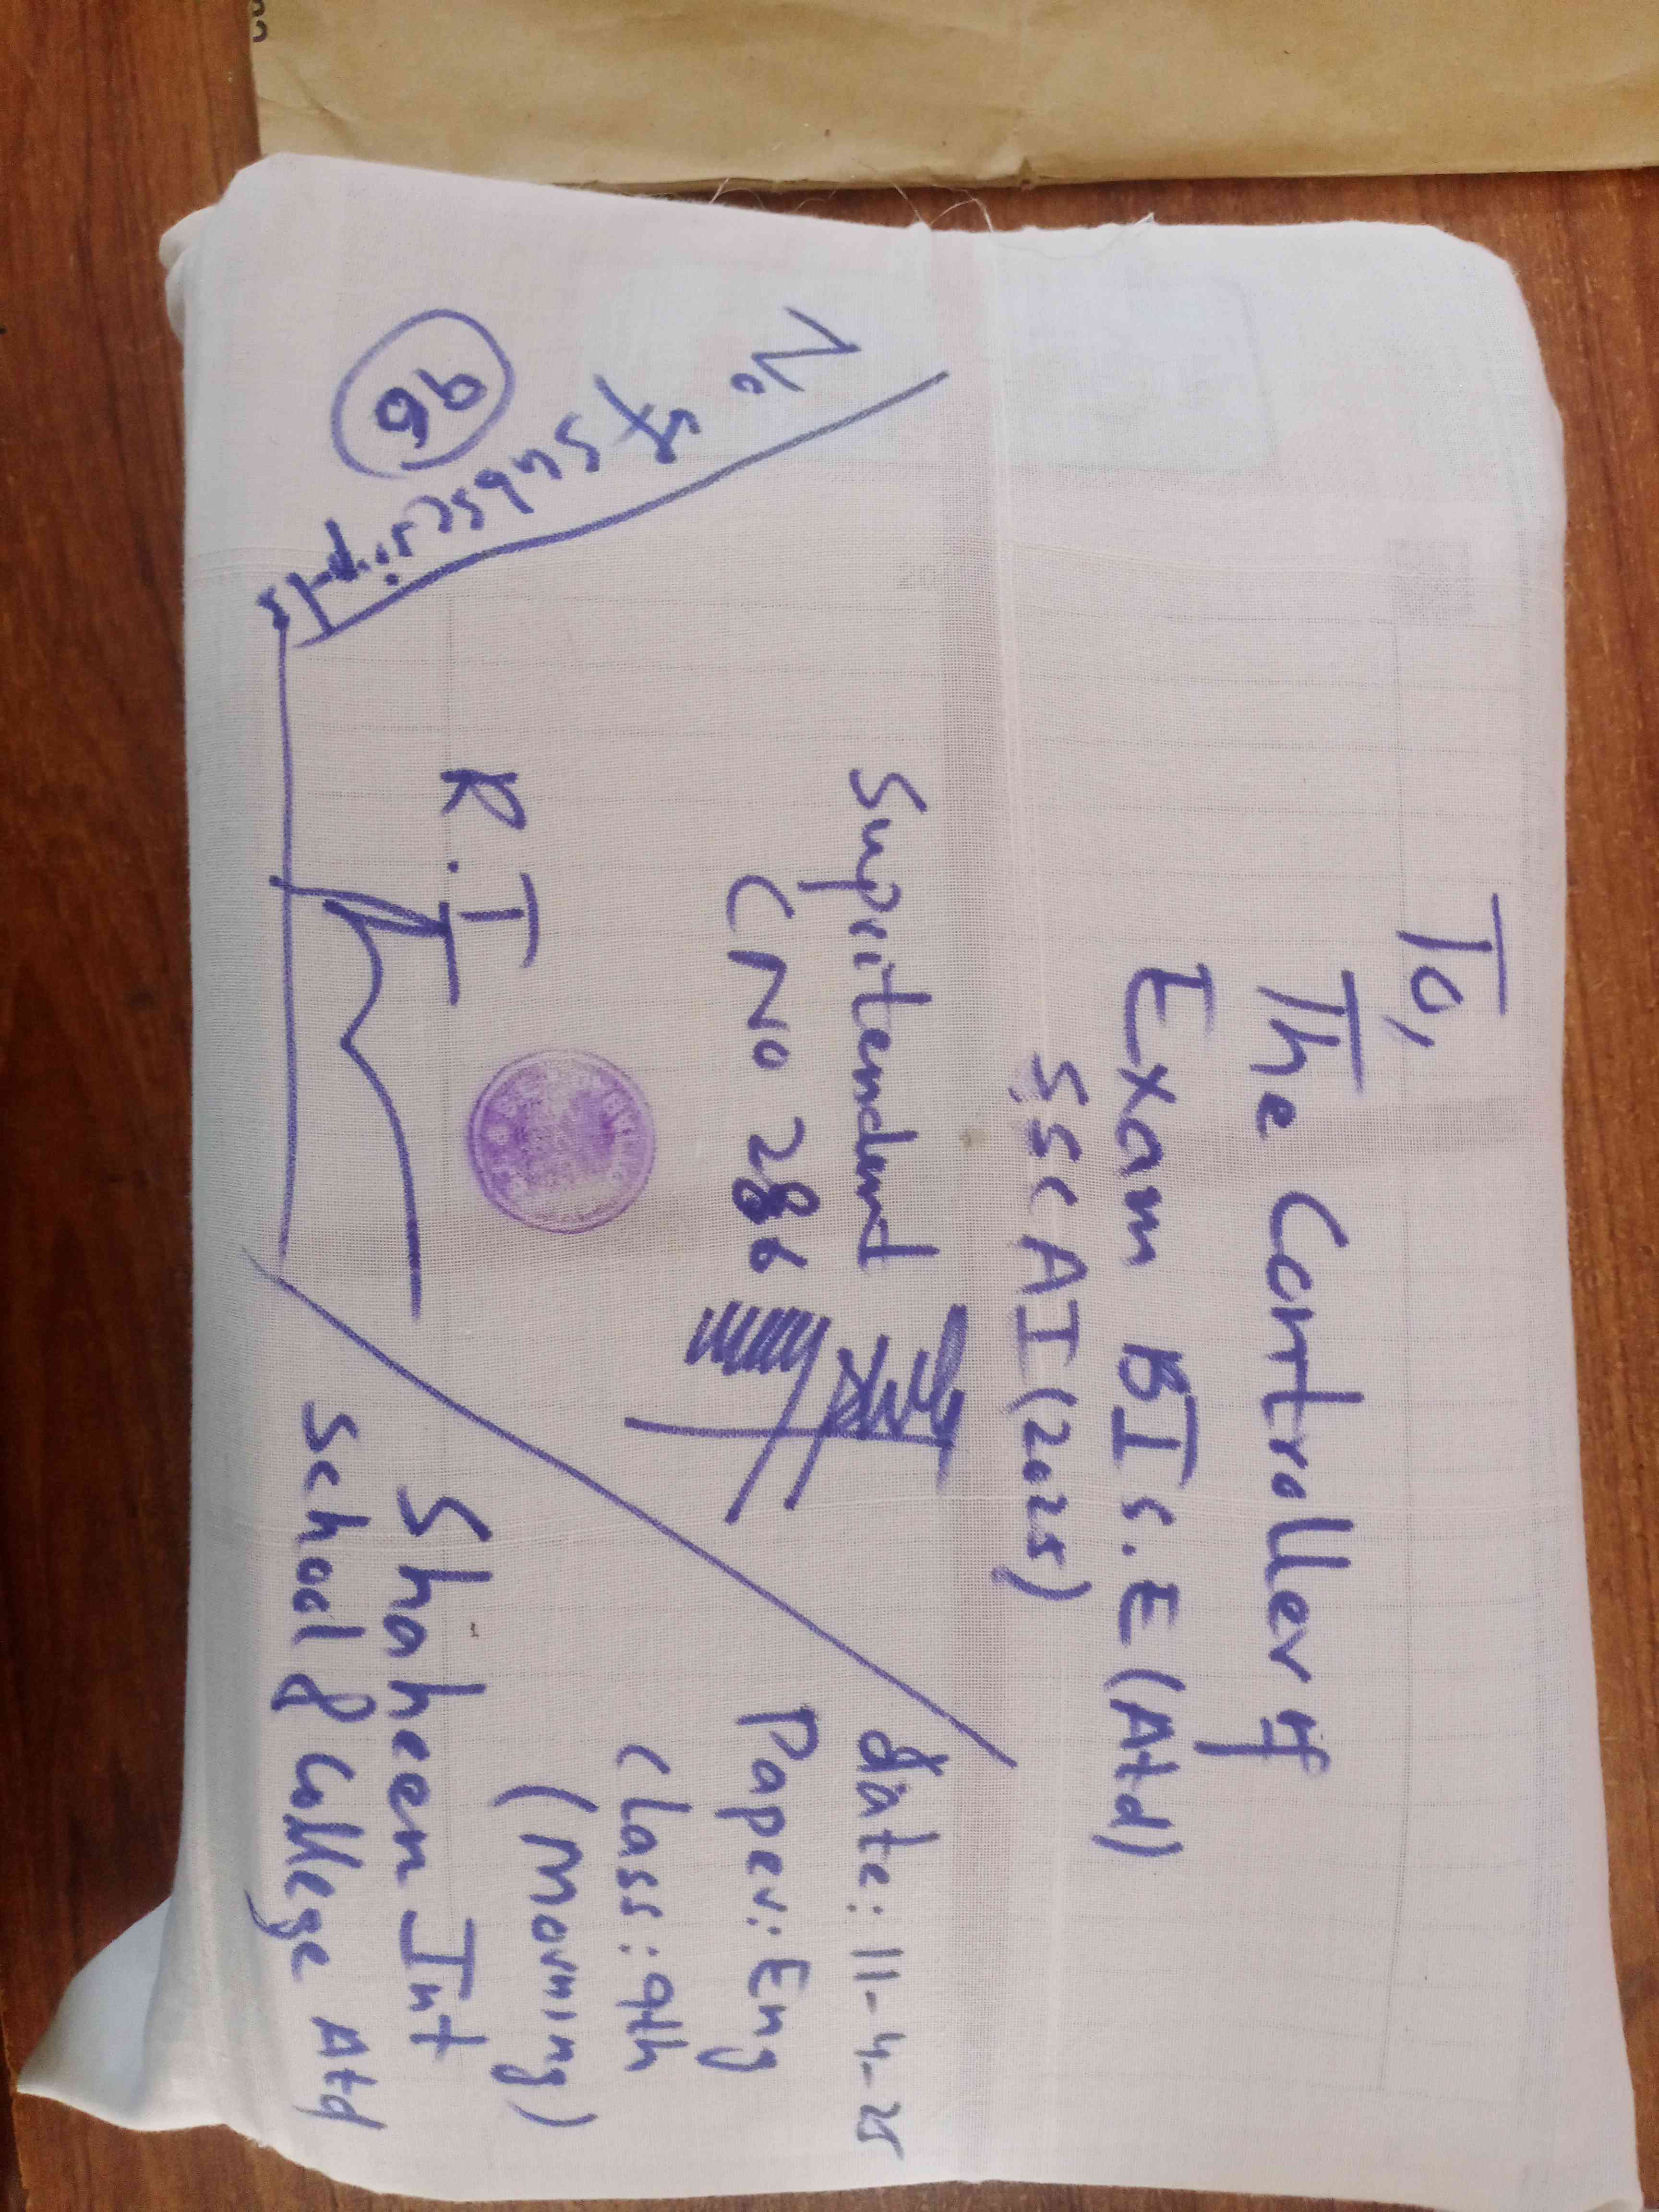 To,
The Controller of
Exam BIS.E (Atd)
SSC AI (2025)
Supritendent
CNO 286
R.I
No of Subscripts
96
date: 11-4-25
Paper: Eng
Class: 9th
(Morning)
Shaheen Int
School & College Atd